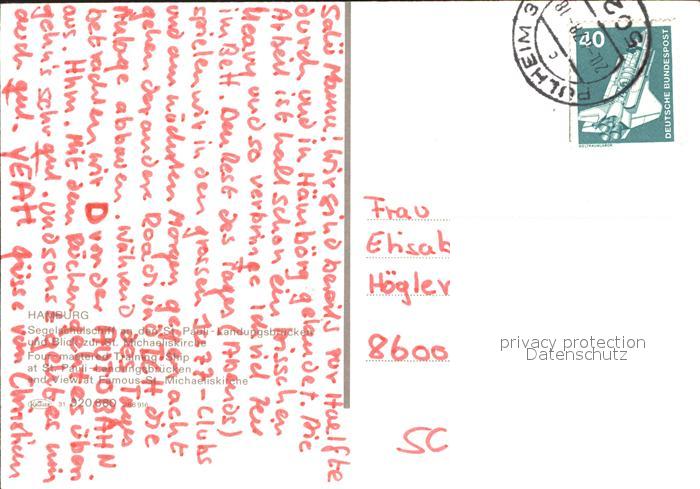 Salü Mama! Wir sind bereits zur Haelfte
durch und in Hambörg gelandet. Die
Arbeit ist halt schon ein bisschen
Heavy und so verbringe ich viel Zeit
in Bett. Den Rest des Tages (Abends)
spielen wir in den grossen Jazz-Clubs
und am nächsten Morgen gegen acht
gehen der andere Roadi und ich die
Anlage abbauen. Während des Tages
betrachten wir D von der AUTOBAHN
aus. Hm. Mit dem Rücken
geht's sehr gut. Und sonst geht es mir
auch gut. YEAH grüsse von Christian
HAMBURG
Segelschulschiff an den St. Pauli-Landungsbrücken
und Blick zur St. Michaeliskirche
Four-mastered Training-Ship
at St. Pauli-Landungsbrücken
and View at Famous St. Michaeliskirche
31 920/680
MÜLHEIM
40
DEUTSCHE BUNDESPOST
WELTRAUMLABOR
Frau
Elisab
Högler
8600
SC
privacy protection
Datenschutz